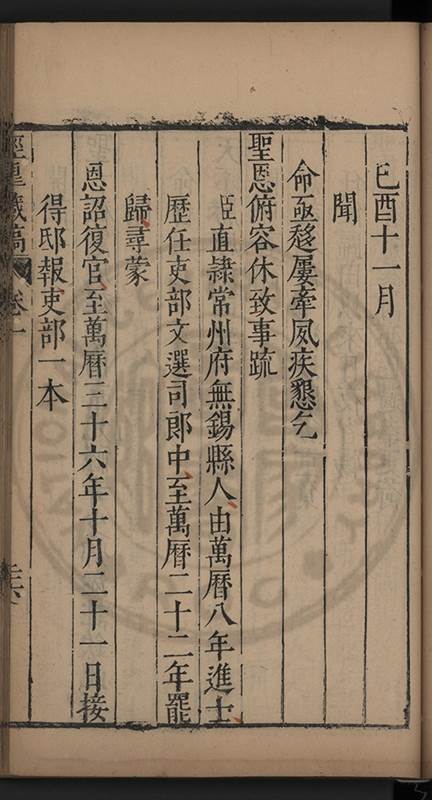 己酉十一月
聞
命亟趍屢牽夙疾懇乞
聖恩俯容休致事疏
臣直隸常州府無錫縣人由萬曆八年進士
歷任吏部文選司郎中至萬曆二十二年罷
歸尋蒙
恩詔復官至萬曆三十六年十月二十一日接
得邸報吏部一本
涇臯藏稿 卷一